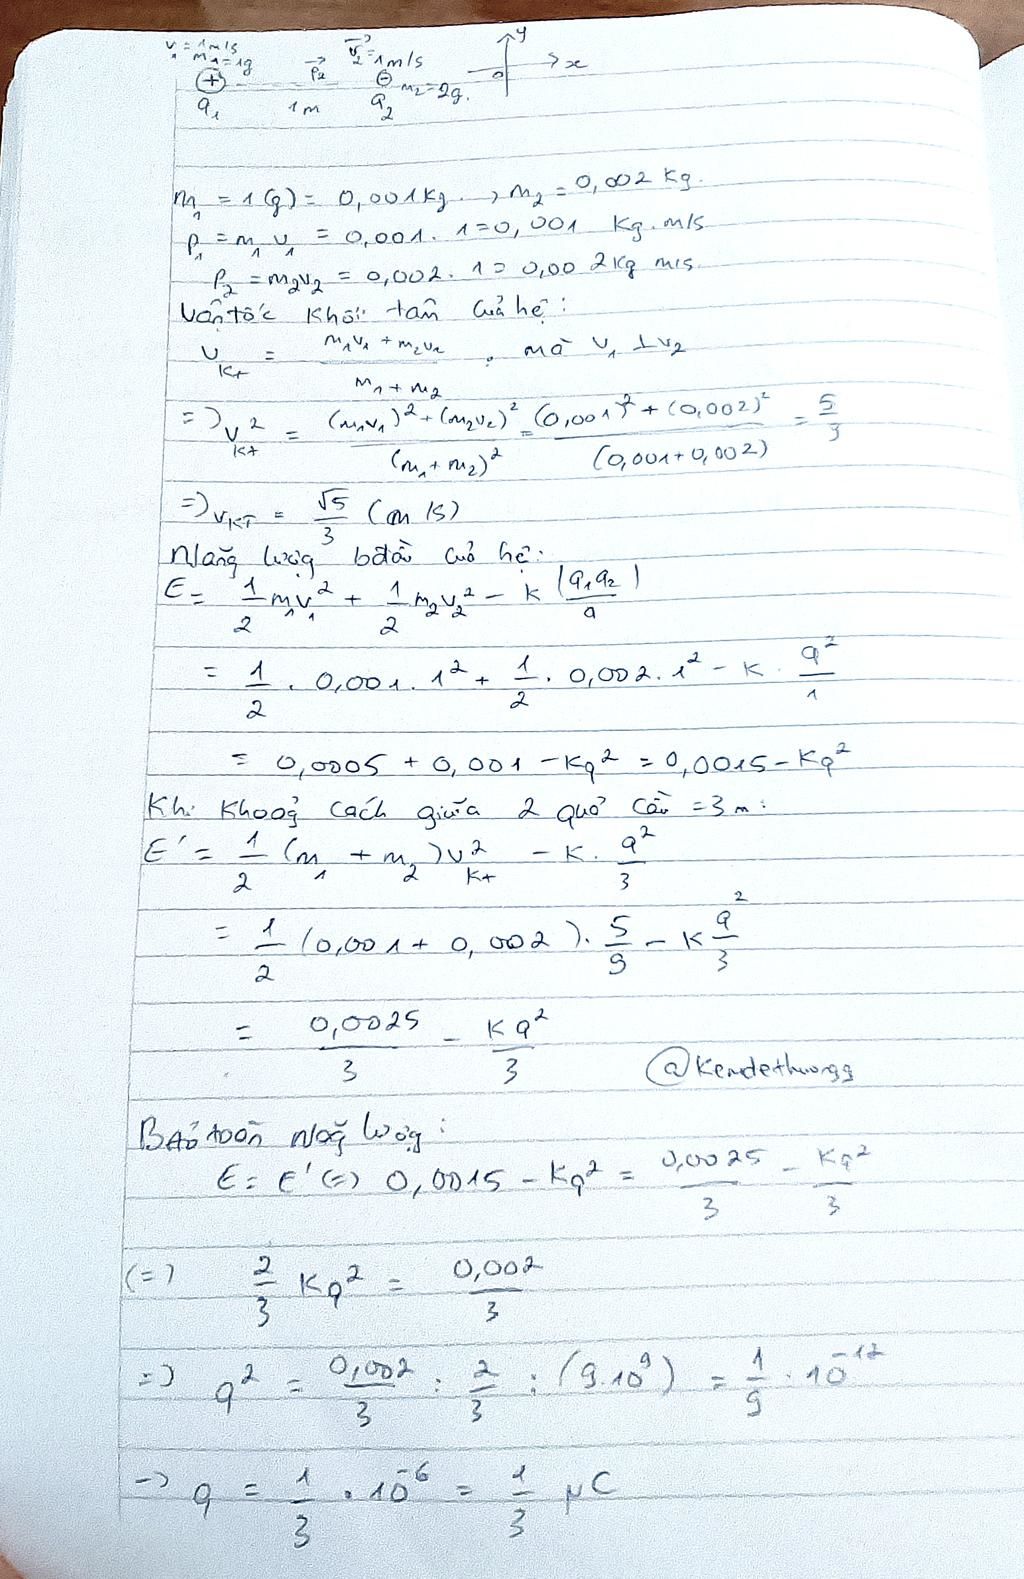 v₁ = 1 m/s
m₁ = 1g
(+)
q₁
p₂
1m
v₂ = 1 m/s
(-) m₂ = 2g.
q₂
y
0
x
m₁ = 1 (g) = 0,001 Kg. , m₂ = 0,002 Kg.
p₁ = m₁ v₁ = 0,001 . 1 = 0,001 Kg. m/s
p₂ = m₂v₂ = 0,002 . 1 = 0,002 Kg m/s.
Vận tốc khối tâm của hệ :
v_Kt = (m₁v₁ + m₂v₂)/(m₁ + m₂) , mà v₁ ⊥ v₂
=> v_Kt² = ((m₁v₁)² + (m₂v₂)²)/(m₁ + m₂)² = ((0,001)² + (0,002)²)/(0,001 + 0,002) = 5/3
=> v_KT = √5/3 (m/s)
Năng lượng bđầu của hệ :
E = 1/2 m₁v₁² + 1/2 m₂v₂² - k |q₁q₂|/a
= 1/2 . 0,001 . 1² + 1/2 . 0,002 . 1² - K . q²/1
= 0,0005 + 0,001 - Kq² = 0,0015 - Kq²
Khi khoảng cách giữa 2 quả cầu = 3m :
E' = 1/2 (m₁ + m₂) v_Kt² - K . q²/3
= 1/2 (0,001 + 0,002) . 5/9 - K q²/3
= 0,0025/3 - Kq²/3
@Kendethuongg
Bảo toàn năng lượng :
E = E' (=) 0,0015 - Kq² = 0,0025/3 - Kq²/3
(=) 2/3 Kq² = 0,002/3
=> q² = 0,002/3 : 2/3 : (9.10⁹) = 1/9 . 10⁻¹²
-> q = 1/3 . 10⁻⁶ = 1/3 μC